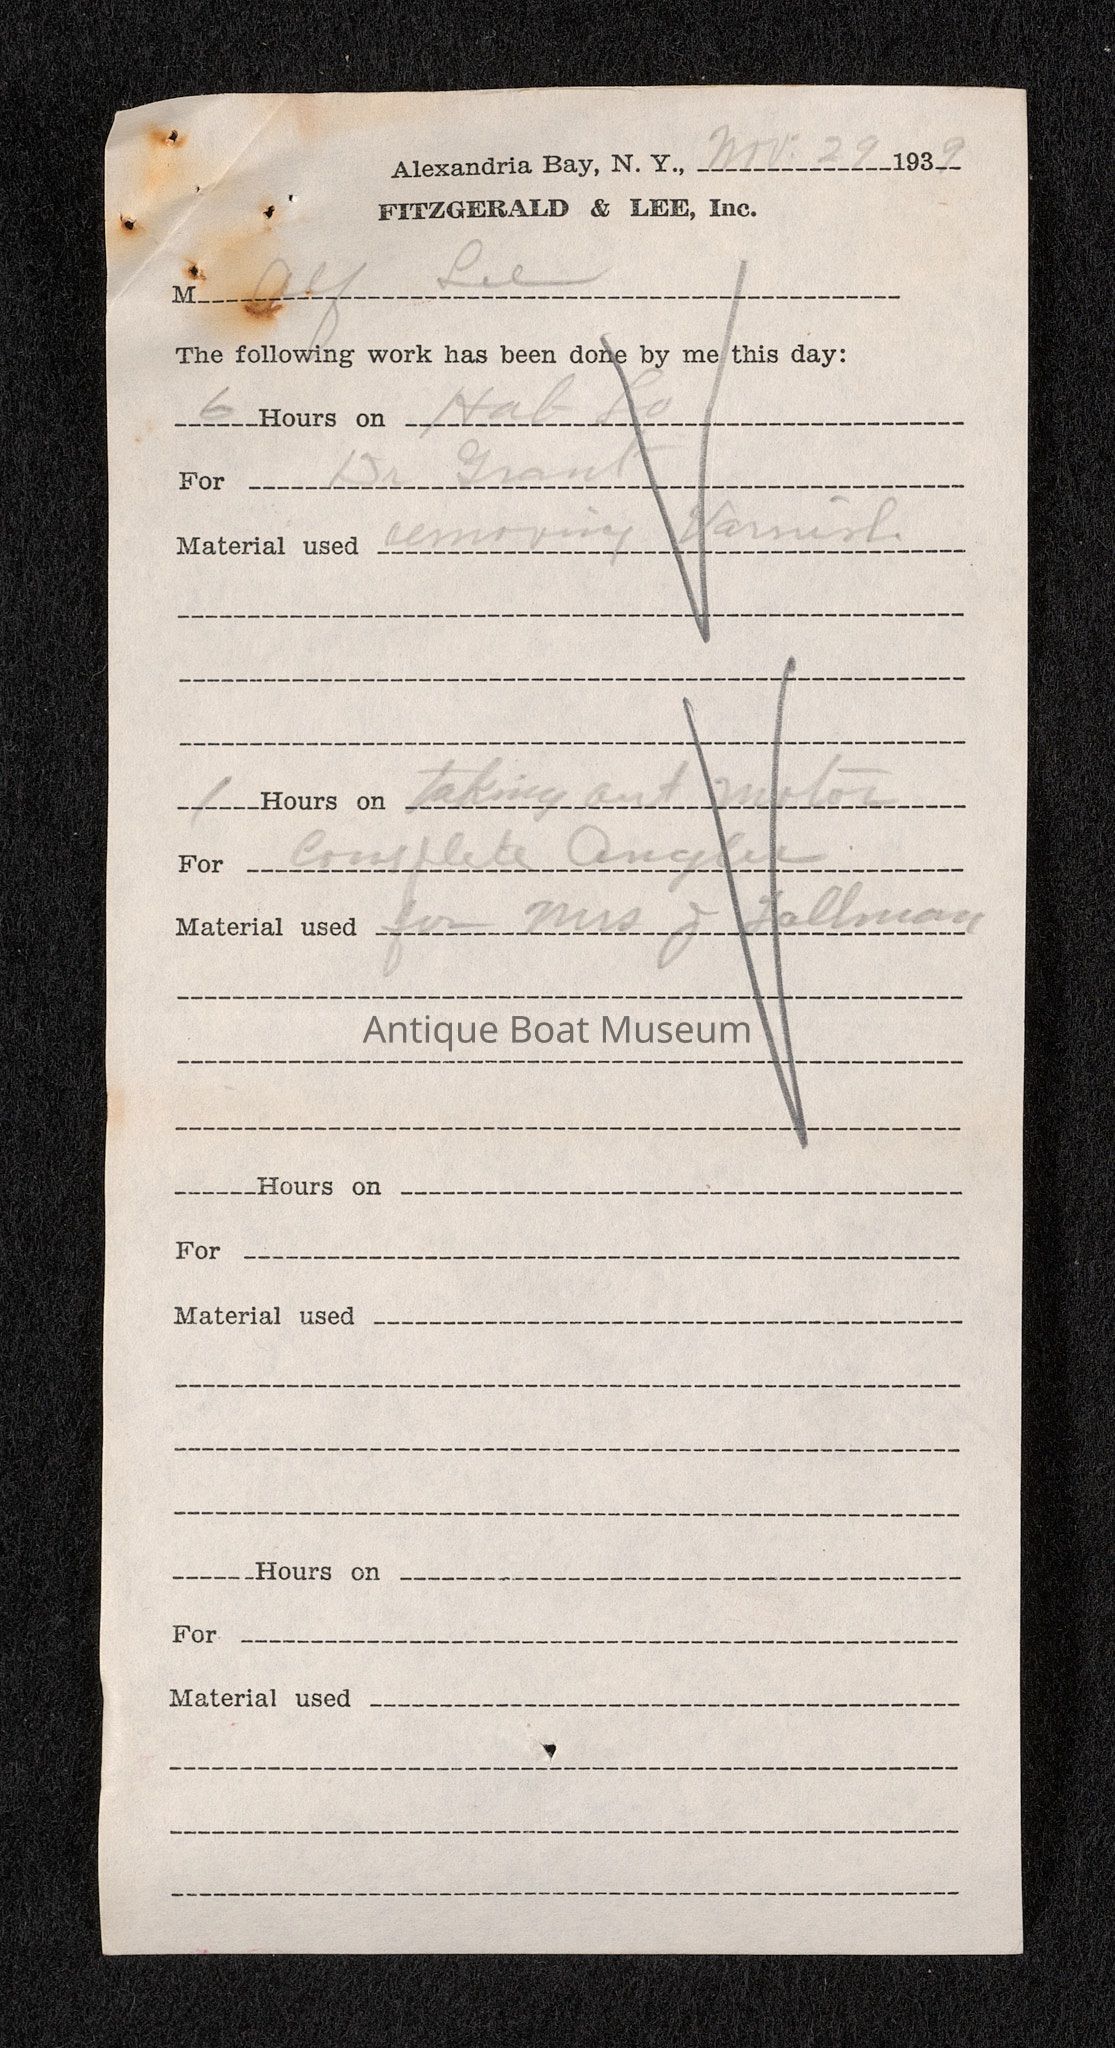 Alexandria Bay, N. Y., Nov. 29 1939
FITZGERALD & LEE, Inc.
M Alf Lee
The following work has been done by me this day:
6 Hours on Hab So
For Dr Grant
Material used removing Varnish.
1 Hours on taking out motor
For Complete Angler
Material used for Mrs J
Antique Boat Museum
Hours on
For
Material used
Hours on
For
Material used